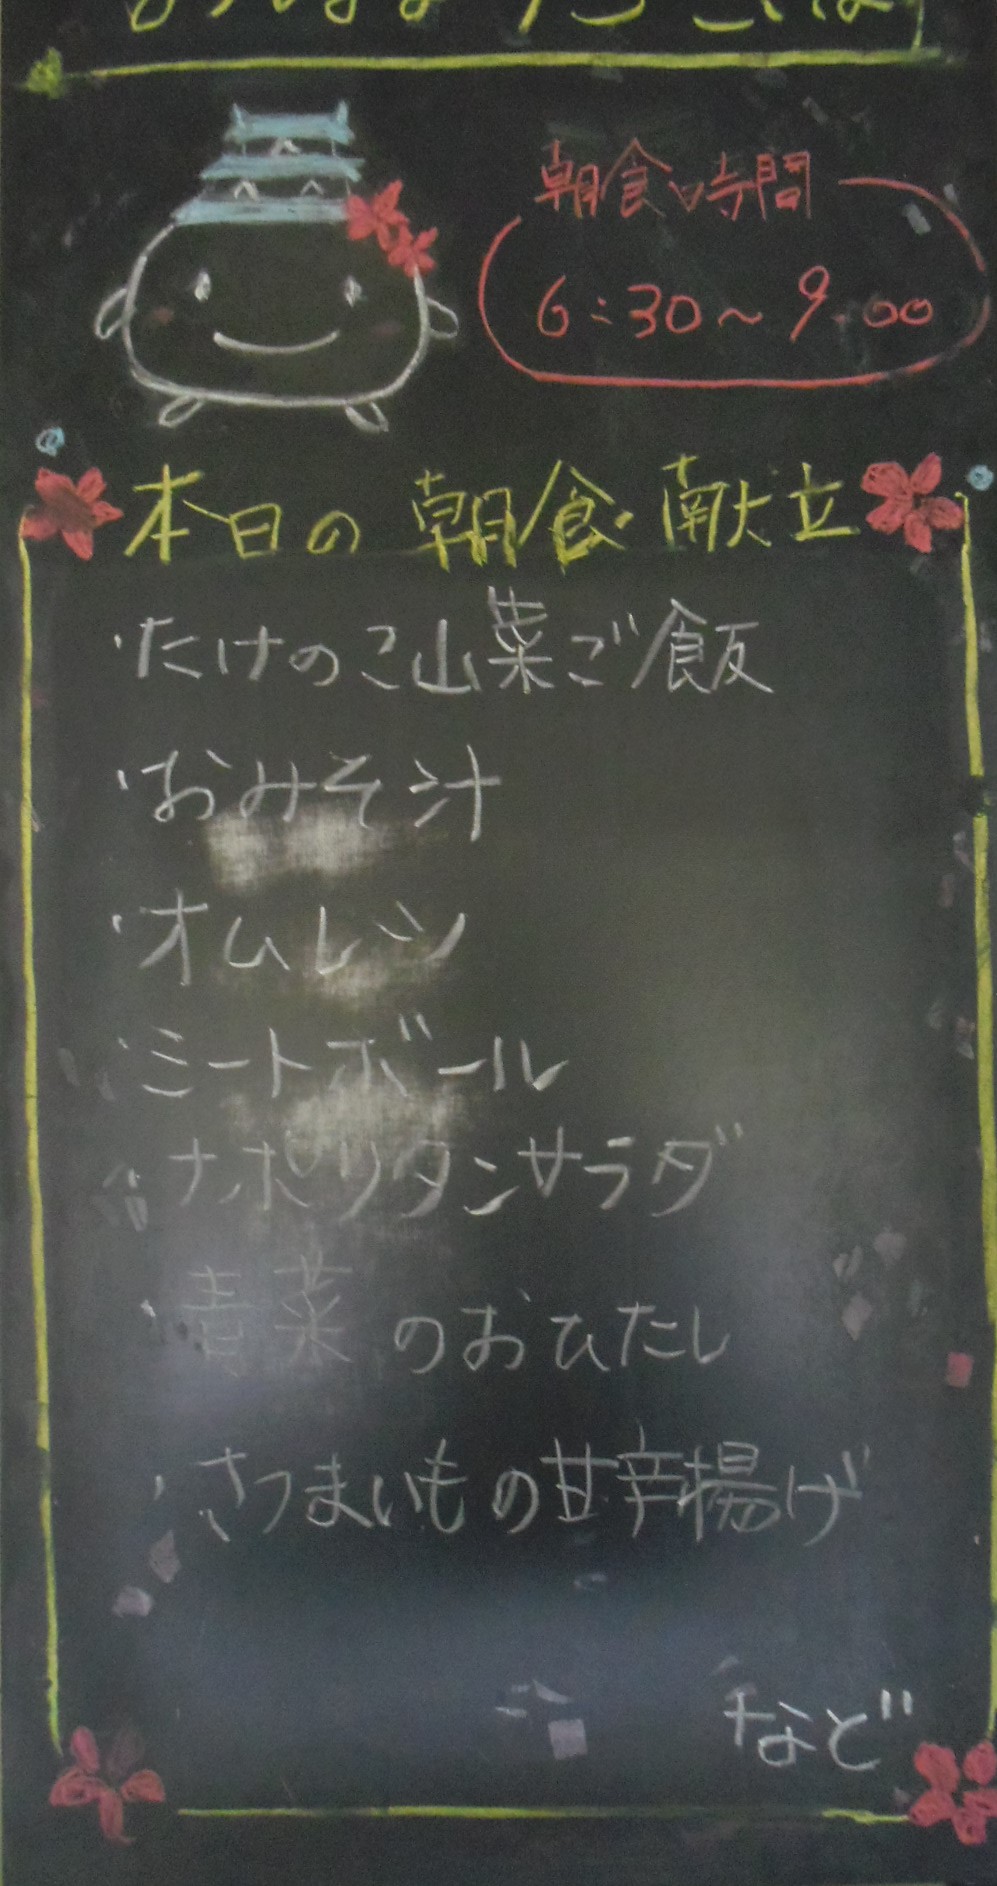 おはようございます
朝食時間
6:30〜9:00
本日の朝食献立
・たけのこ山菜ご飯
・おみそ汁
・オムレツ
・ミートボール
・ナポリタンサラダ
・青菜のおひたし
・さつまいもの甘辛揚げ
など